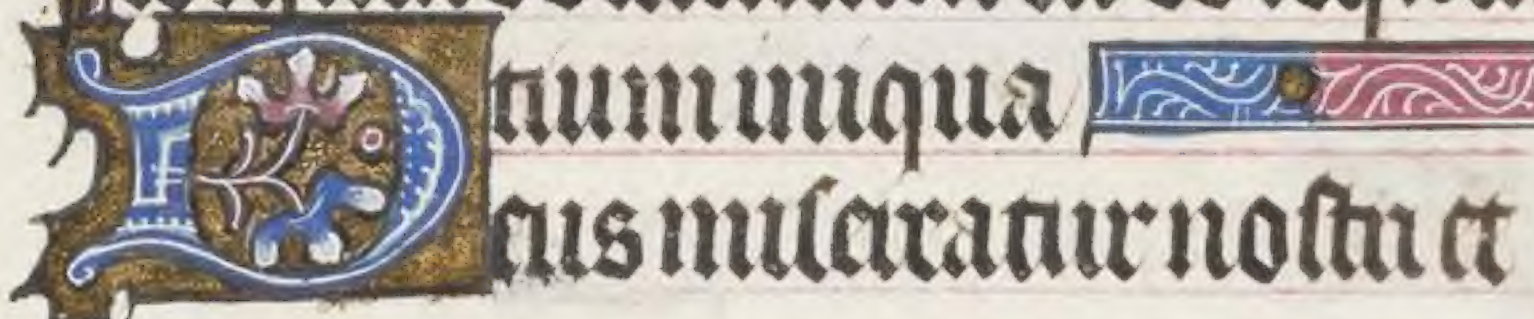 tium iniqua
Deus misereatur nostri et